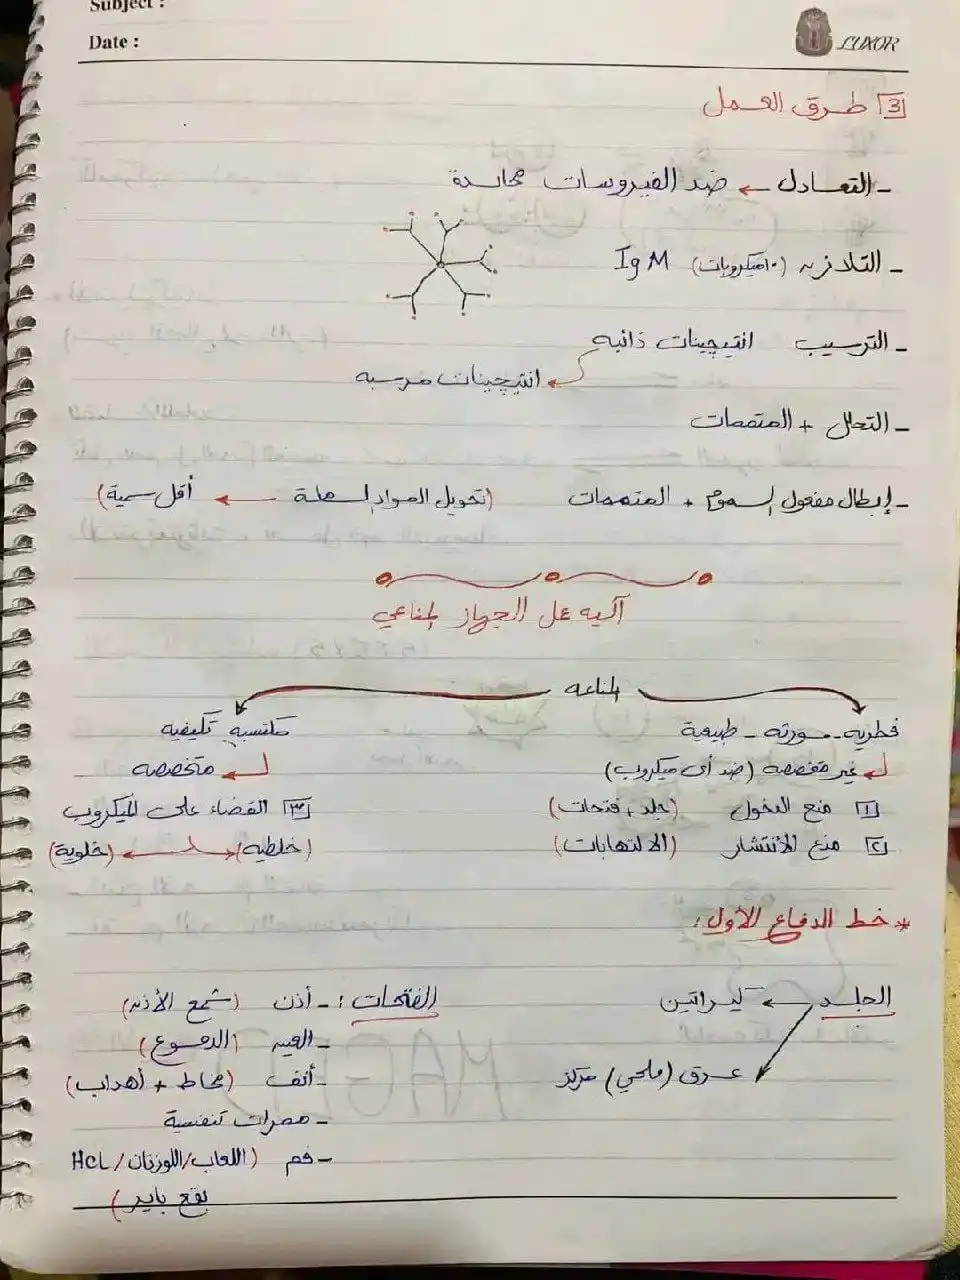 Subject :
Date :
LUXOR
3 طرق العمل
- التعادل ← ضد الفيروسات
- التلازن (١٠ميكروبات) IgM
- الترسيب انتيجينات ذائبه
انتيجينات مرسبه
- التحلل + المتممات
- إبطال مفعول السموم + المتممات (تحويل المواد السامة ← أقل سمية)
آلية عمل الجهاز المناعي
المناعه
فطريه - موروثه - طبيعية
غير متخصصه (ضد أى ميكروب)
١ منع الدخول (جلد + فتحات)
٢ منع الانتشار (الالتهابات)
مكتسبه تكيفيه
متخصصه
٣ القضاء على الميكروب
(خلطيه) (خلوية)
* خط الدفاع الأول :
الجلد ← كيراتين
عرق (ملحي) مركز
الفتحات : - أذن (شمع الأذن)
- العين (الدموع)
- أنف (مخاط + أهداب)
- ممرات تنفسية
- فم (اللعاب / اللوزتان / HCL
بقع باير)